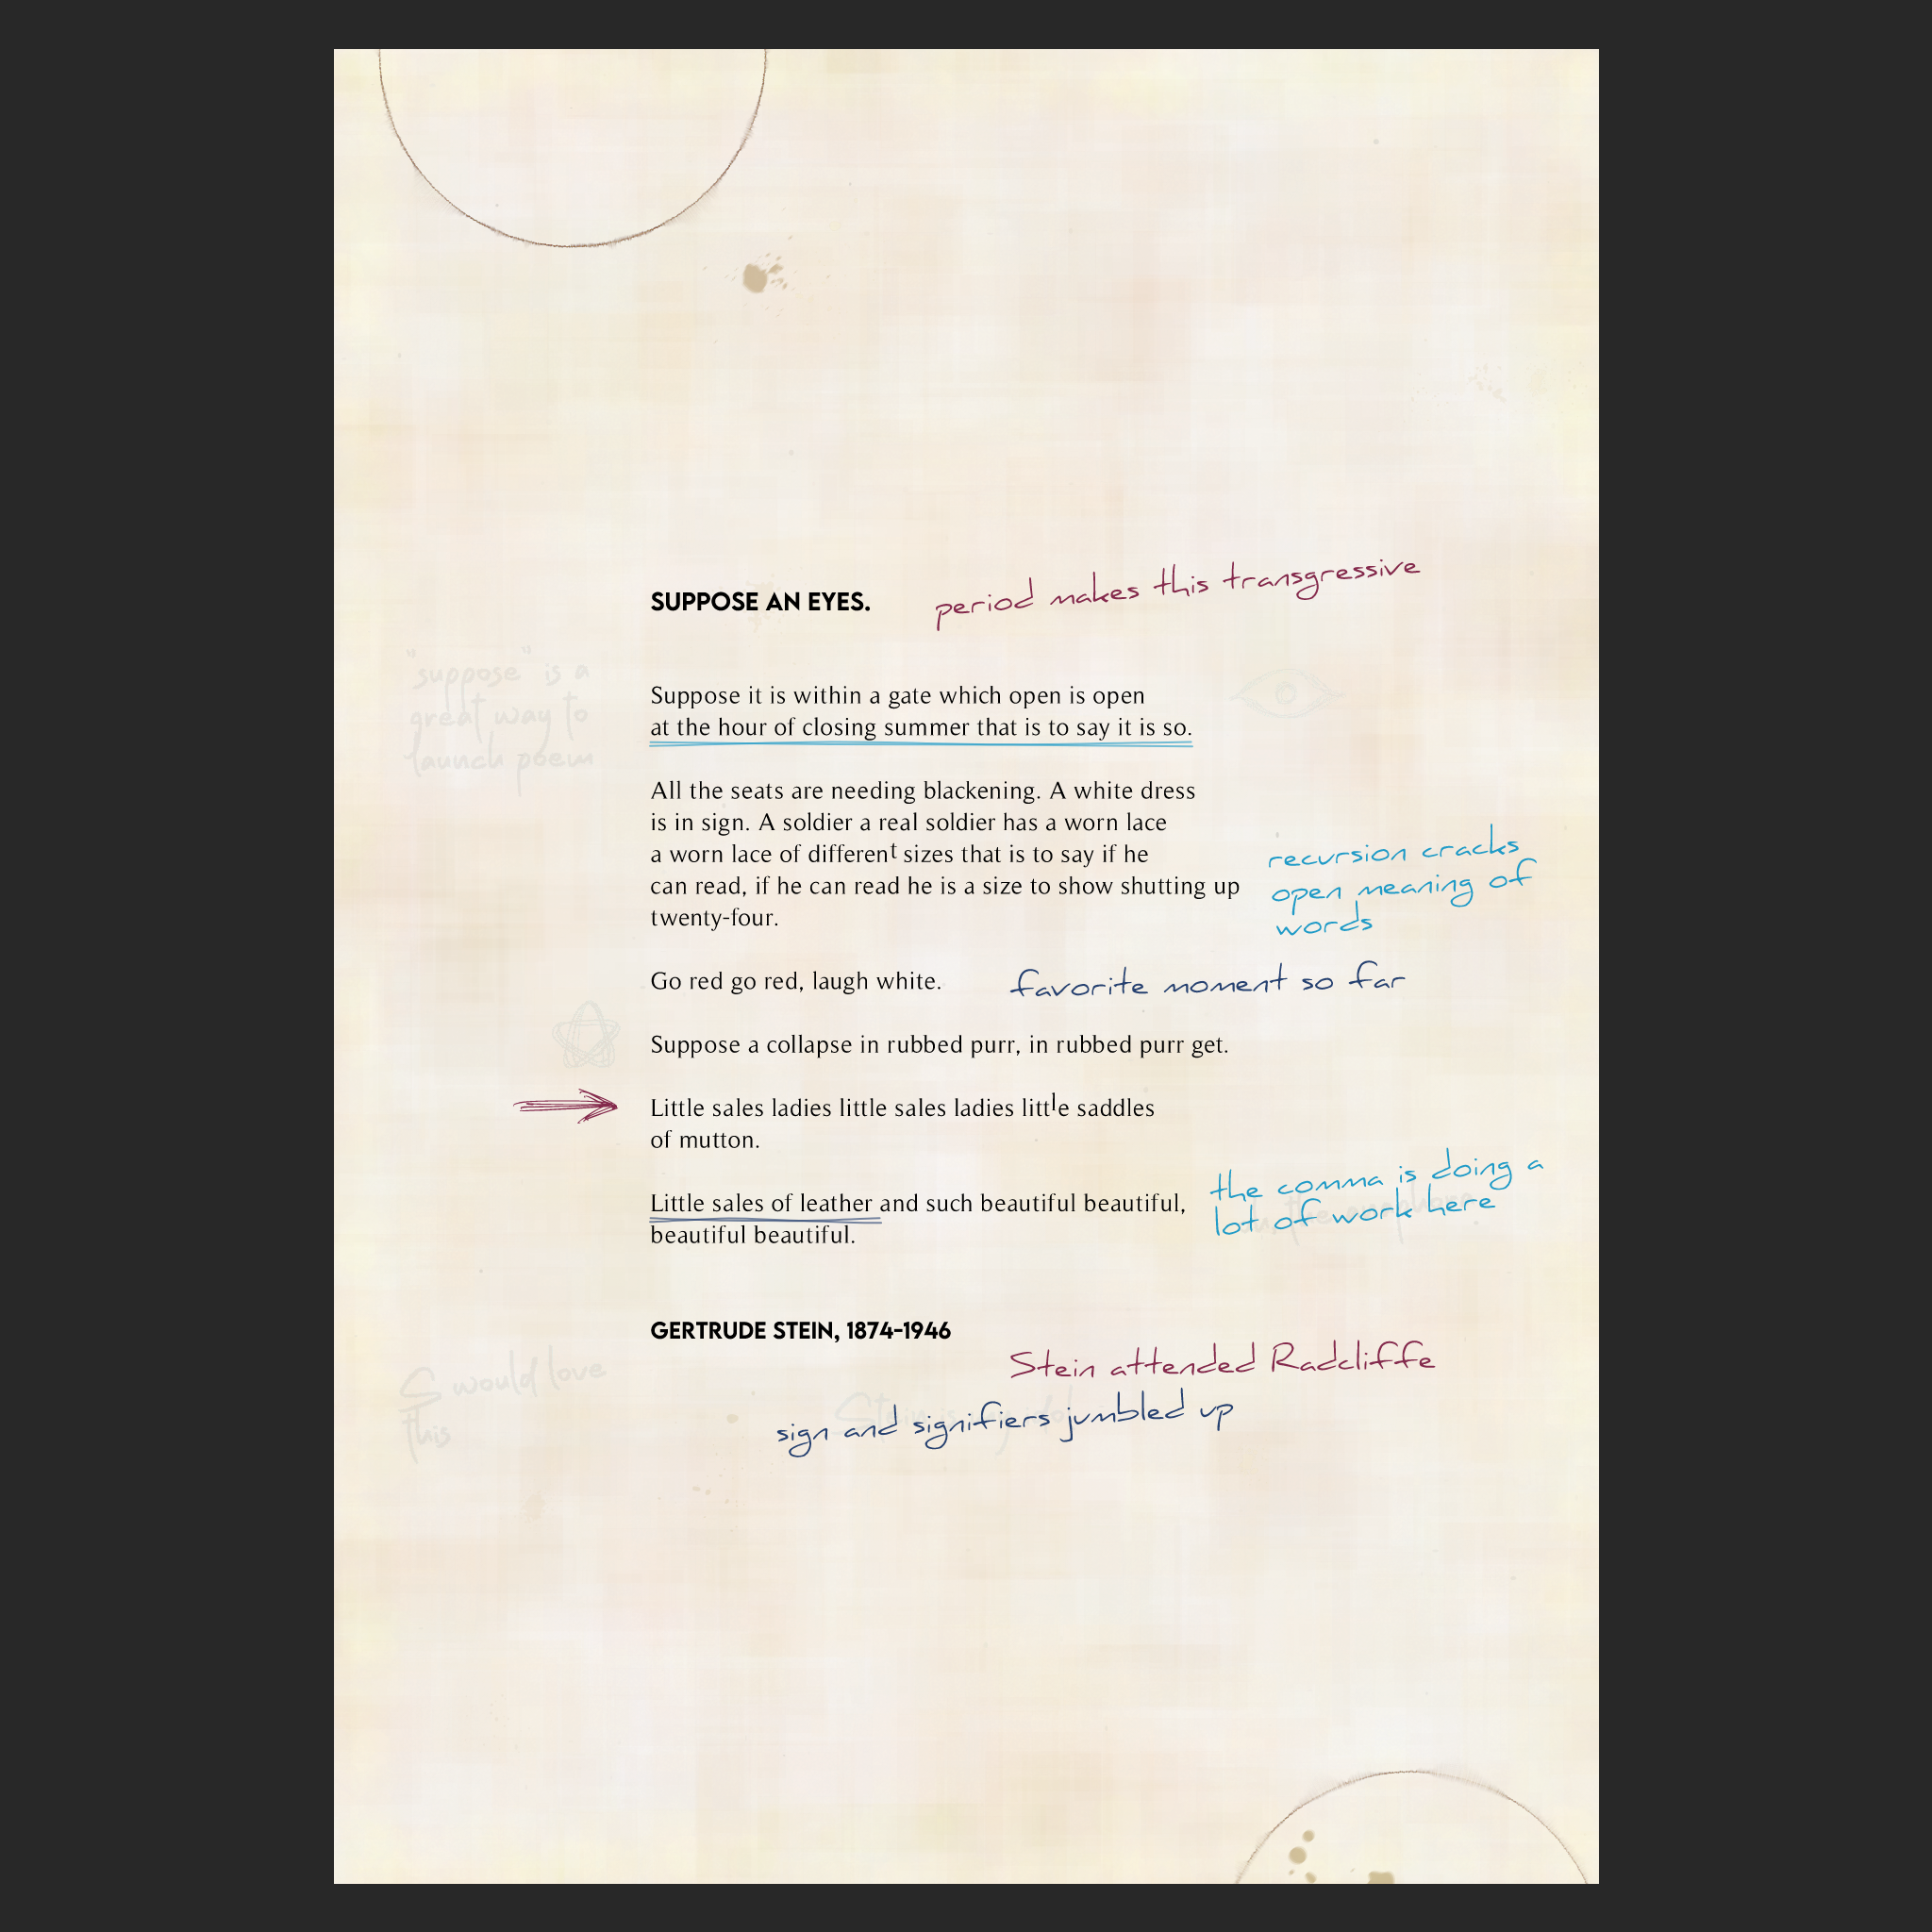 SUPPOSE AN EYES.
period makes this transgressive
"suppose" is a
great way to
launch poem
Suppose it is within a gate which open is open
at the hour of closing summer that is to say it is so.
All the seats are needing blackening. A white dress
is in sign. A soldier a real soldier has a worn lace
a worn lace of different sizes that is to say if he
can read, if he can read he is a size to show shutting up
twenty-four.
recursion cracks
open meaning of
words
Go red go red, laugh white.
favorite moment so far
Suppose a collapse in rubbed purr, in rubbed purr get.
Little sales ladies little sales ladies little saddles
of mutton.
Little sales of leather and such beautiful beautiful,
beautiful beautiful.
the comma is doing a
lot of work here
GERTRUDE STEIN, 1874-1946
Stein attended Radcliffe
S would love
this
Stein is
sign and signifiers jumbled up